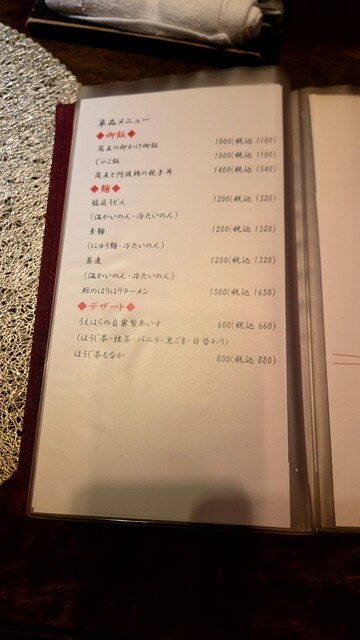 単品メニュー
◆御飯◆
蘭王の卵かけ御飯 1000(税込 1100)
じゃこ飯 1000(税込 1100)
蘭王と阿波鶏の親子丼 1400(税込 1540)
◆麺◆
稲庭うどん 1200(税込 1320)
(温かいのん・冷たいのん)
素麺 1200(税込 1320)
(にゅう麺・冷たいのん)
蕎麦 1200(税込 1320)
(温かいのん・冷たいのん)
鯨のはりはりラーメン 1500(税込 1650)
◆デザート◆
うえはらの自家製あいす 600(税込 660)
(ほうじ茶・抹茶・バニラ・黒ごま・日替わり)
ほうじ茶もなか 800(税込 880)